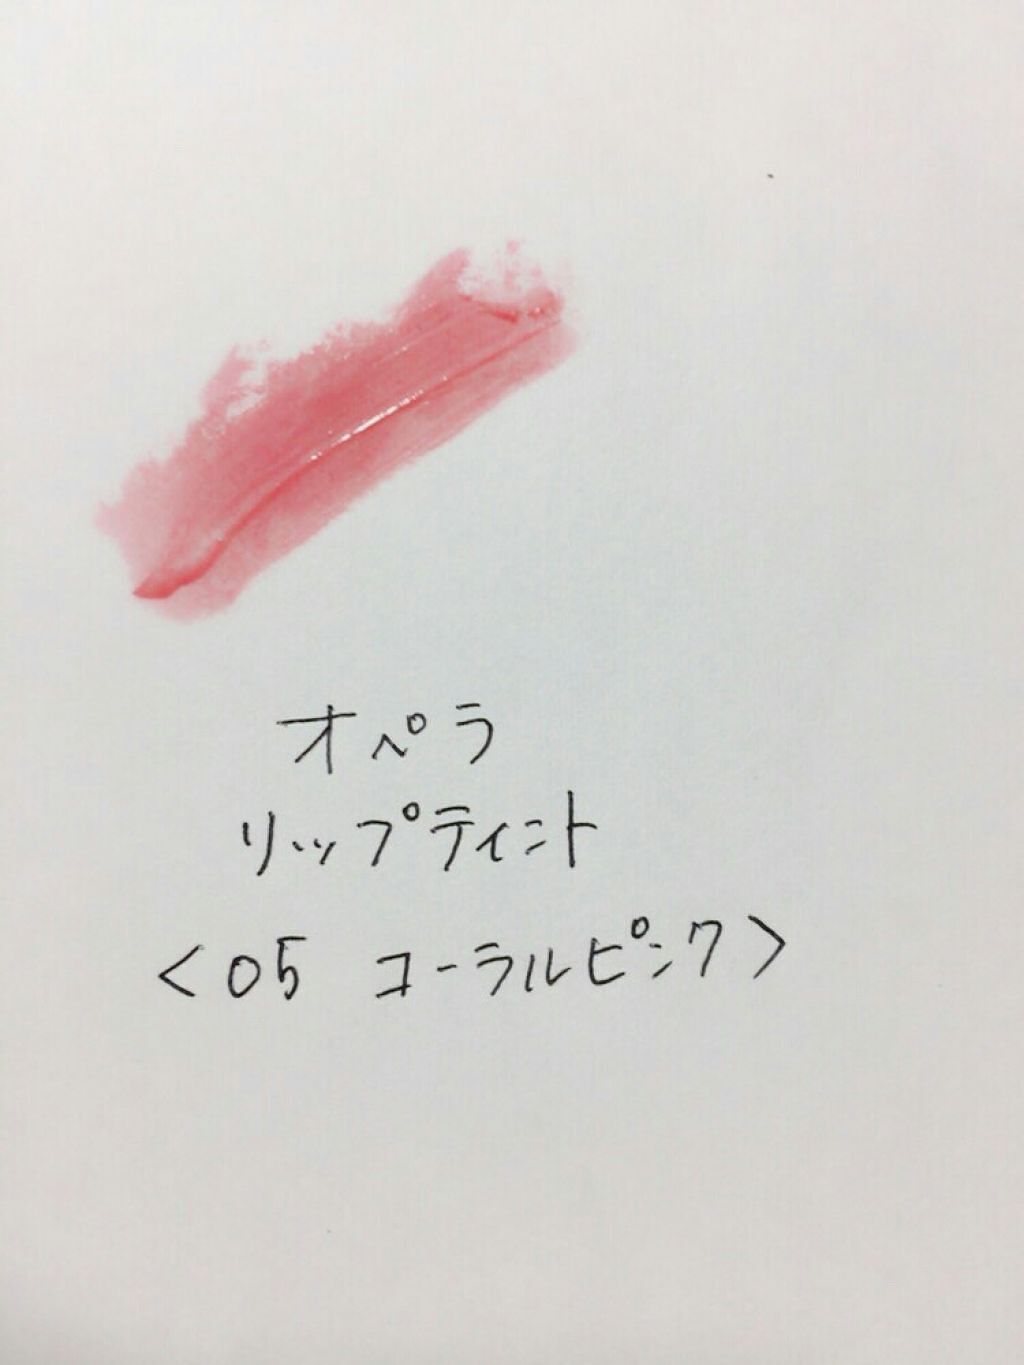 オペラ
リップティント
<05 コーラルピンク>